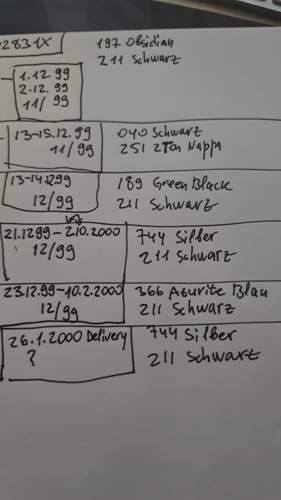 2831X
197 Obsidian
211 Schwarz
1.12.99
2.12.99
11/99
13-15.12.99
11/99
040 Schwarz
251 2Ton Nappa
13-14.12.99
12/99
189 Green Black
211 Schwarz
21.12.99-2.10.2000
12/99
744 Silber
211 Schwarz
23.12.99-10.2.2000
12/99
366 Azurite Blau
211 Schwarz
26.1.2000 Delivery
?
744 Silber
211 Schwarz